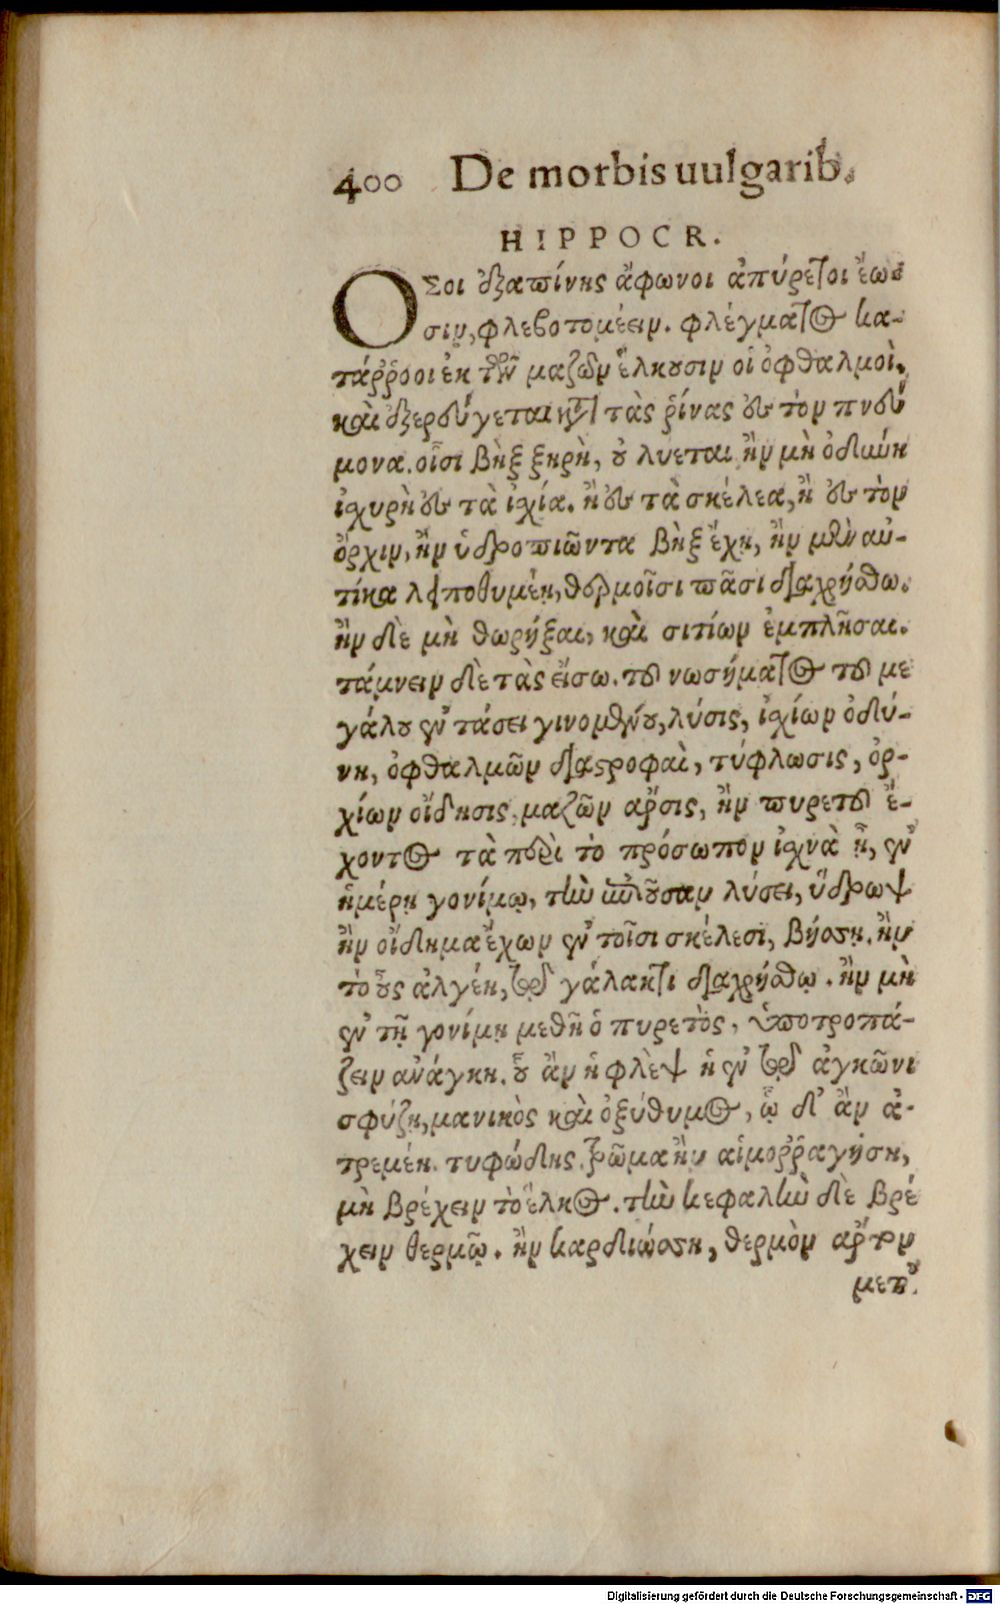 400 De morbis uulgarib.
HIPPOCR.
ΟΣοι ἐξαπίνης ἄφωνοι ἀπύρετοι ἔω-
σιν, φλεβοτομέειν. φλέγματος κα-
τάῤῥοοι ἐκ τῶν μαζῶν ἕλκουσιν οἱ ὀφθαλμοὶ.
καὶ ἐξερεύγεται κατὰ τὰς ῥίνας ἐς τὸν πνεύ
μονα. οἷσι βὴξ ξηρὴ, οὐ λυεται ἢν μὴ ὀδιύνη
ἰχυρὴ ἐς τὰ ἰχία. ἢ ἐς τὰ σκέλεα, ἢ ἐς τὸν
ὄρχιν, ἢν ὑδρωπιῶντα βὴξ ἔχῃ, ἢν μὲν αὐ-
τίκα λειποθυμέῃ, θερμοῖσι πᾶσι διαχρήσθω.
ἢν δὲ μὴ θωρῆξαι, καὶ σιτίων ἐμπλῆσαι.
τάμνειν δὲ τὰς εἴσω. τοῦ νωσήματος τοῦ με
γάλου ἐν τάσει γινομένου, λύσις, ἰχίων ὀδύ-
νη, ὀφθαλμῶν διαστροφαὶ, τύφλωσις, ὀρ-
χίων οἴδησις, μαζῶν ἄρσις, ἢν πυρετοῦ ἔ-
χοντος τὰ περὶ τὸ πρόσωπον ἰχνὰ ᾖ, ἐν
ἡμέρῃ γονίμῳ, τὴν αὐλοῦσαν λύσει, ὕδρωψ
ἢν οἴδημα ἔχων ἐν τοῖσι σκέλεσι, βήσσῃ. ἢν
τὸ οὖς ἀλγέη, τῷ γάλακτι διαχρήσθω. ἢν μὴ
ἐν τῇ γονίμῃ μεθῇ ὁ πυρετὸς, ὑποτροπά-
ζειν ἀνάγκη. οὗ ἂν ἡ φλὲψ ἡ ἐν τῷ ἀγκῶνι
σφύζῃ, μανικὸς καὶ ὀξύθυμος, ᾧ δ' ἂν ἀ-
τρεμέη. τυφώδης. τρῶμα ἢν αἱμοῤῥαγήσῃ,
μὴ βρέχειν τὸ ἕλκος. τὴν κεφαλὴν δὲ βρέ
χειν θερμῷ. ἢν καρδιώσσῃ, θερμὸν ἄρτον
μετ'
Digitalisierung gefördert durch die Deutsche Forschungsgemeinschaft - DFG